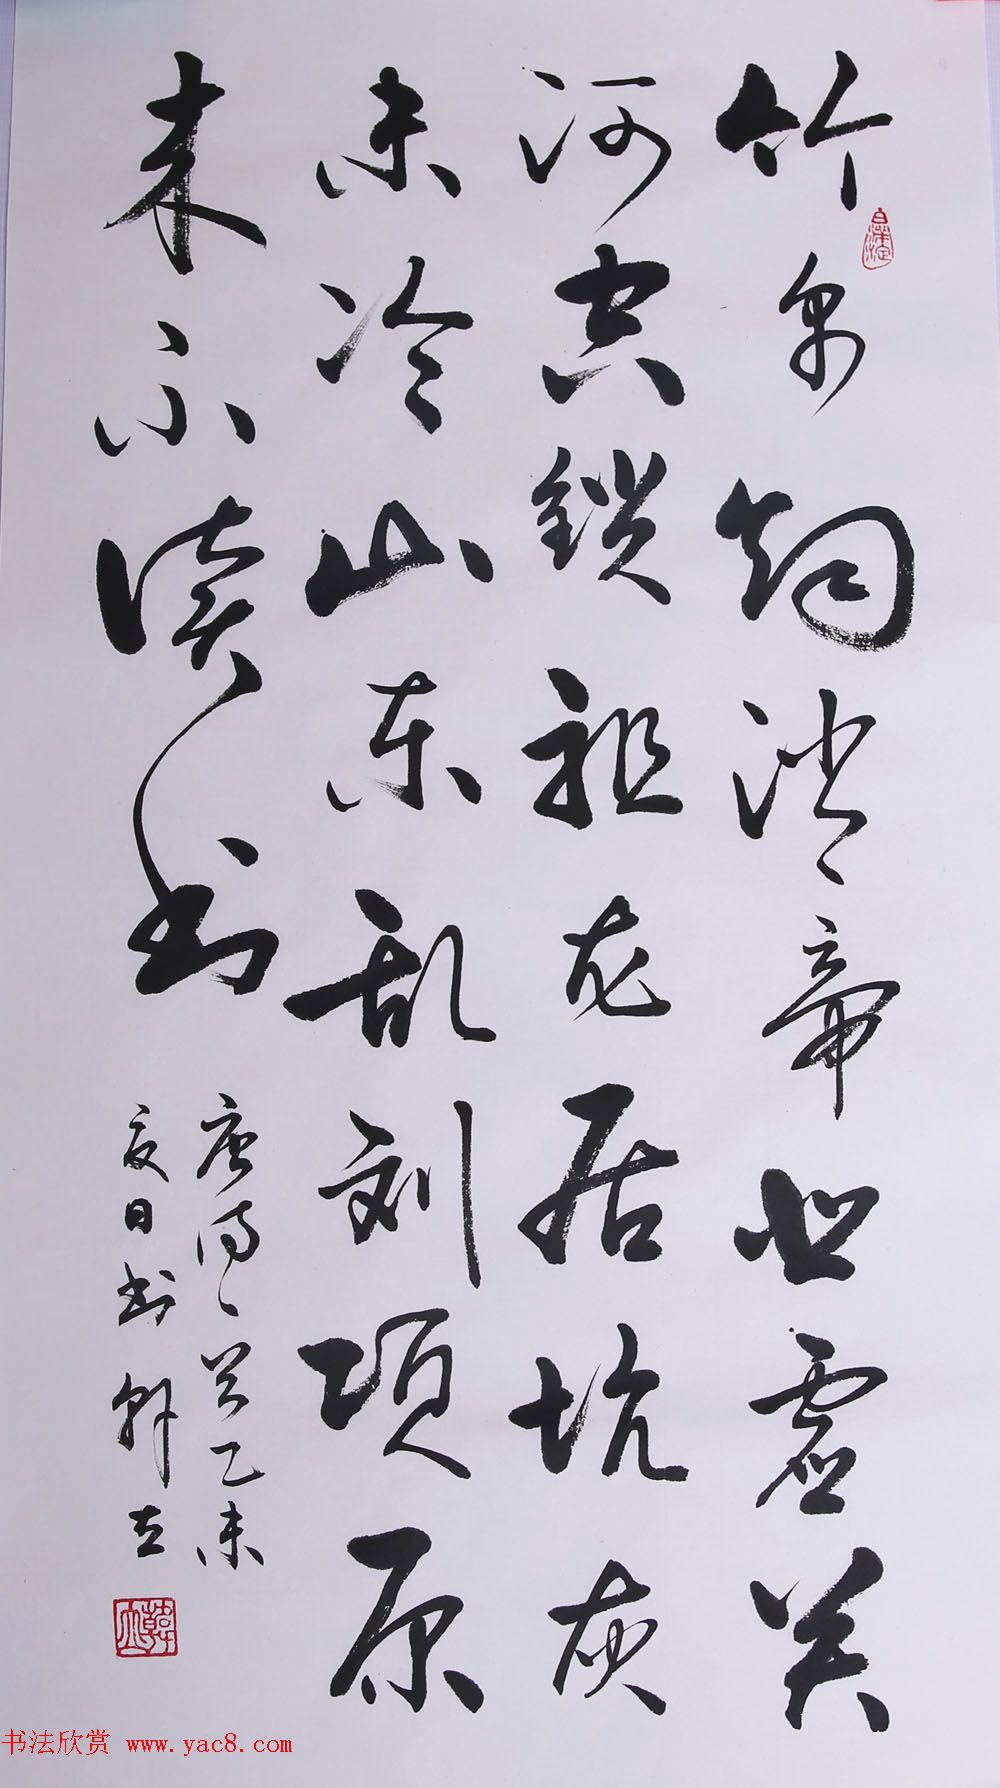 竹帛烟消帝业虚关
河空鎖祖龙居坑灰
未冷山东乱刘项原
来不读书
唐诗一首乙未
夏日书韩立
书法欣赏 www.yac8.com